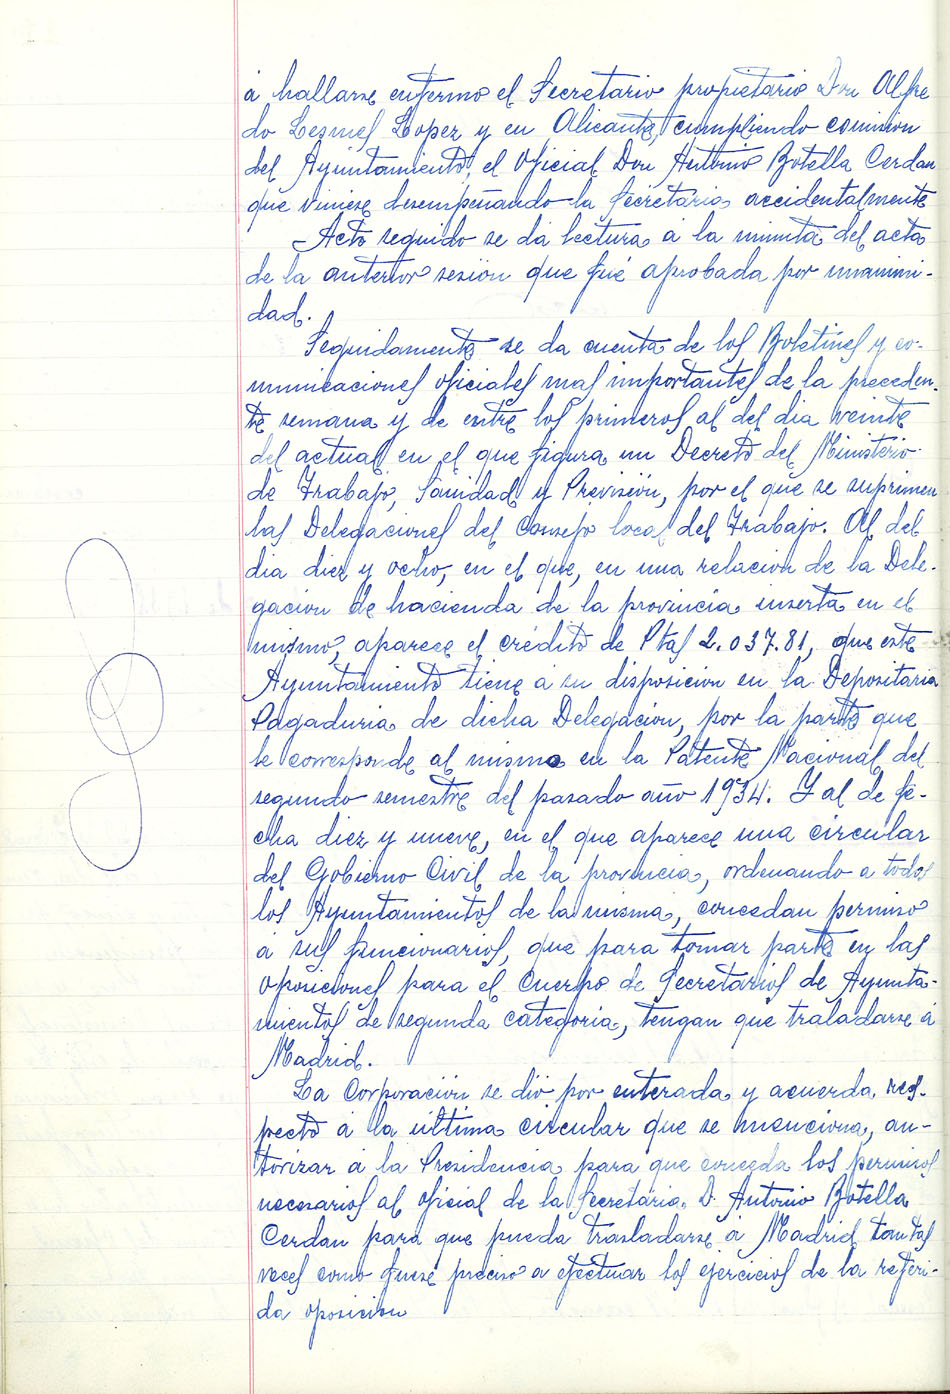 á hallarse enfermo el Secretario propietario Don Alfre
do Lesmes Lopez y en Alicante, cumpliendo comision
del Ayuntamiento, el Oficial Don Antonio Botella Cerdan
que viniese desempeñando la Secretaria accidentalmente
Acto seguido se da lectura a la minuta del acta
de la anterior sesion que fué aprobada por unanimi-
dad.
Seguidamente se da cuenta de los Boletines y co-
municaciones oficiales mas importantes de la preceden-
te semana y de entre los primeros al del dia veinte
del actual en el que figura un Decreto del Ministerio
de Trabajo, Sanidad y Previsión, por el que se suprimen
las Delegaciones del Consejo local del Trabajo. Al del
dia diez y ocho, en el que, en una relacion de la Dele-
gacion de hacienda de la provincia inserta en el
mismo, aparece el crédito de Ptas 2.037.81, que este
Ayuntamiento tiene a su disposicion en la Depositaria
Pagaduria de dicha Delegacion, por la parte que
le corresponde al mismo en la Patente Nacional del
segundo semestre del pasado año 1934. Y al de fe-
cha diez y nueve, en el que aparece una circular
del Gobierno Civil de la provincia, ordenando a todos
los Ayuntamientos de la misma, concedan permiso
a sus funcionarios, que para tomar parte en las
oposiciones para el Cuerpo de Secretarios de Ayunta-
mientos de segunda categoria, tengan que traladarse á
Madrid.
La Corporación se dió por enterada y acuerda res-
pecto a la última circular que se menciona, au-
torizar a la Presidencia para que conceda los permisos
necesarios al oficial de la Secretaria, D. Antonio Botella
Cerdan para que pueda trasladarse a Madrid tantas
veces como fuese preciso a efectuar los ejercicios de la referi-
da oposicion